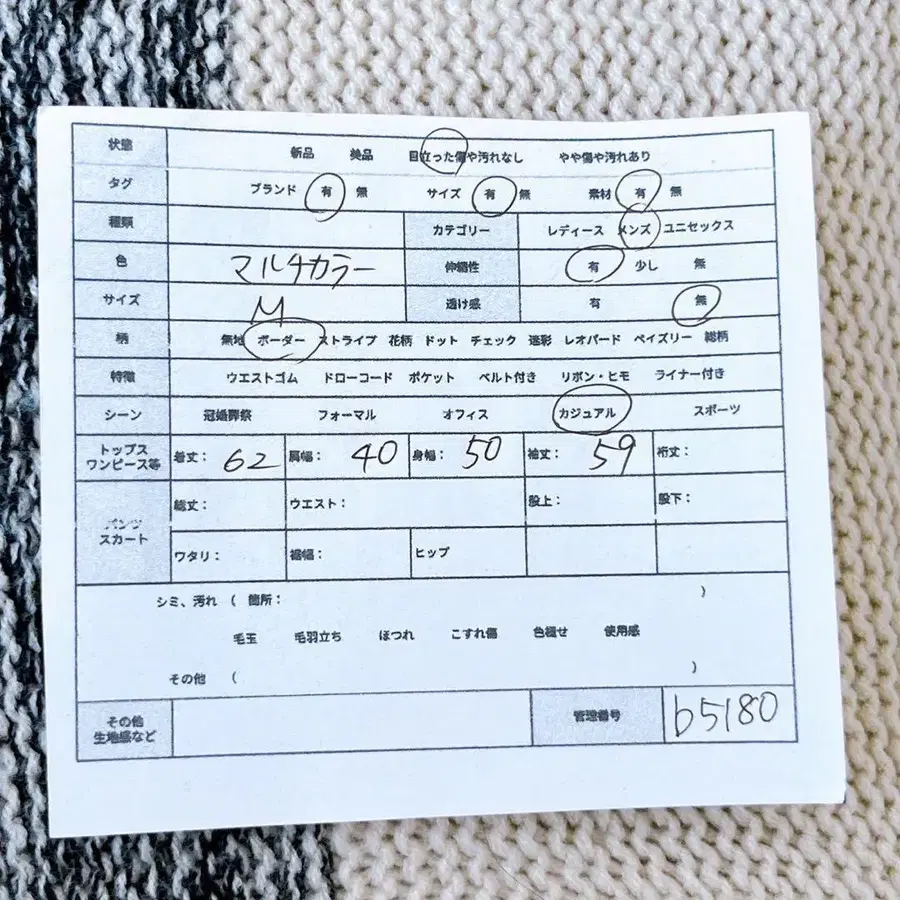 状態 新品 美品 目立った傷や汚れなし やや傷や汚れあり
タグ ブランド 有 無 サイズ 有 無 素材 有 無
種類 カテゴリー レディース メンズ ユニセックス
色 マルチカラー 伸縮性 有 少し 無
サイズ M 透け感 有 無
柄 無地 ボーダー ストライプ 花柄 ドット チェック 迷彩 レオパード ペイズリー 総柄
特徴 ウエストゴム ドローコード ポケット ベルト付き リボン・ヒモ ライナー付き
シーン 冠婚葬祭 フォーマル オフィス カジュアル スポーツ
トップス
ワンピース等 着丈: 62 肩幅: 40 身幅: 50 袖丈: 59 裄丈:
パンツ
スカート
総丈: ウエスト: 股上: 股下:
ワタリ: 裾幅: ヒップ
シミ、汚れ ( 箇所: )
毛玉 毛羽立ち ほつれ こすれ傷 色褪せ 使用感
その他 ( )
その他
生地感など 管理番号 b5180